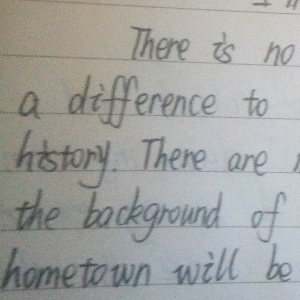 There is no
a difference to
history. There are
the background of
hometown will be